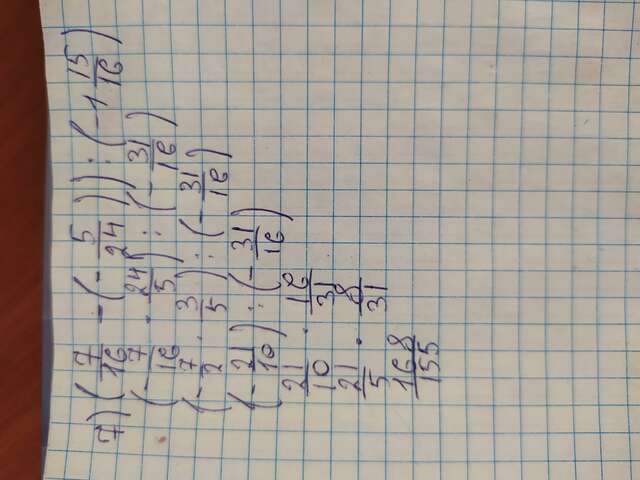 7) (7/16 -(-5/24)) : (-1 15/16)
(-7/16 · 24/5) : (-31/16)
(-7/2 · 3/5) : (-31/16)
(-21/10) : (-31/16)
21/10 · 16/31
21/5 · 8/31
168/155